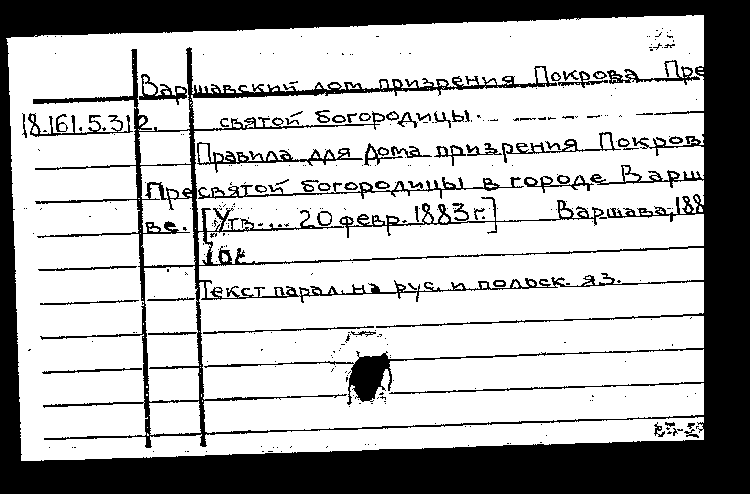 Варшавский дом призрения Покрова Пре
18.161.5.312. святой богородицы.
Правила для Дома призрения Покрова
Пресвятой богородицы в городе Варша
ве. [Утв. ... 20 февр. 1883 г.] Варшава, 188
Текст парал. на рус. и польск. яз.